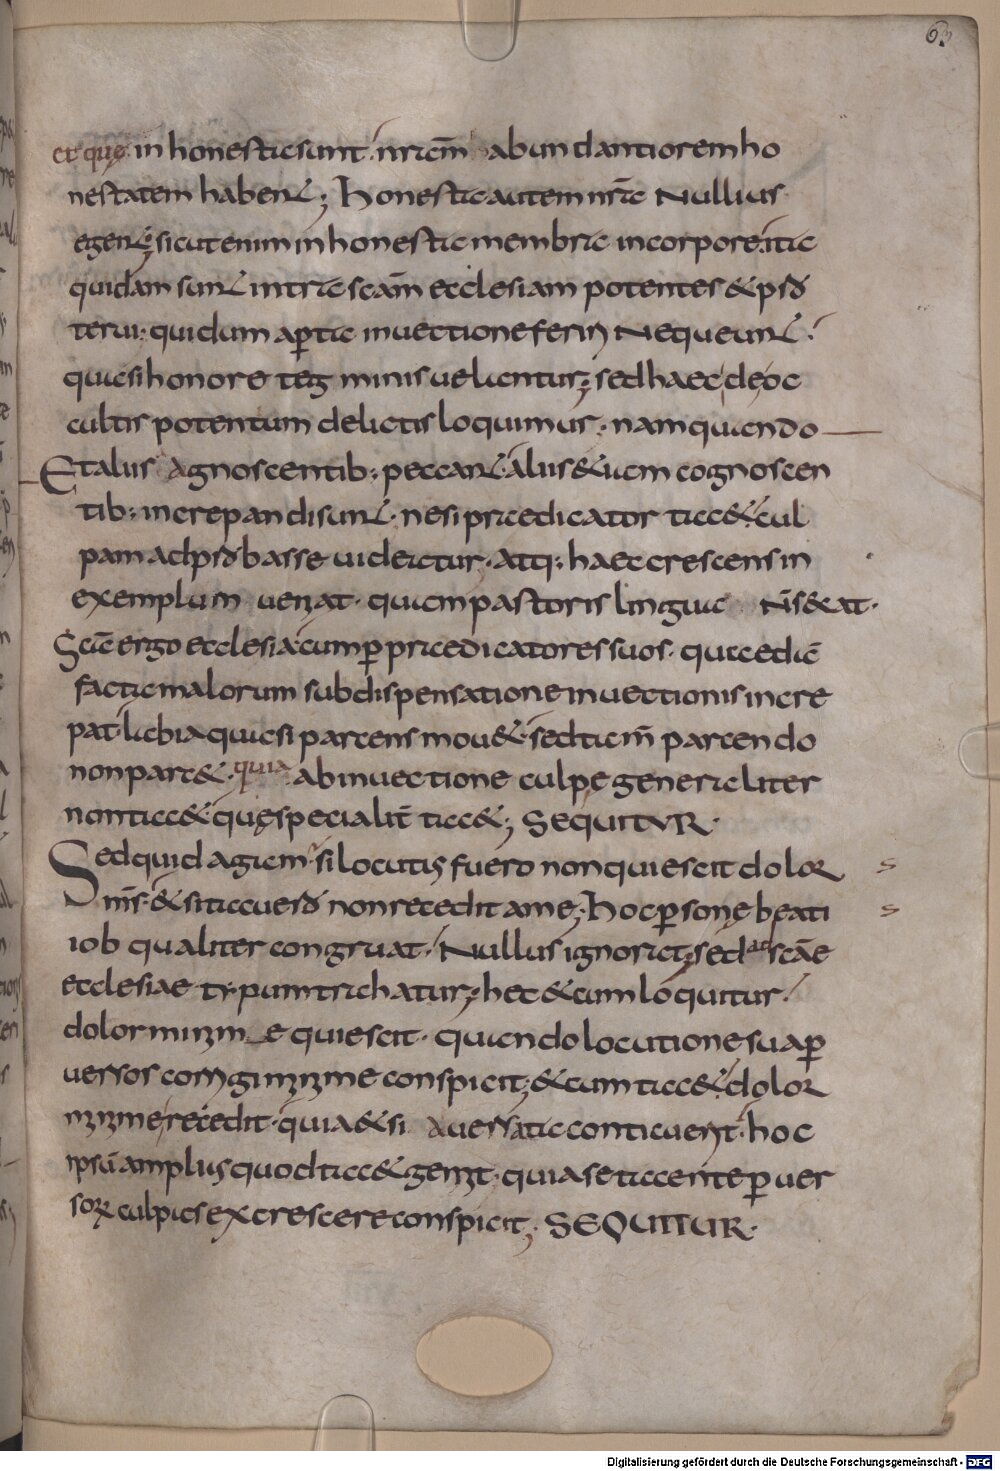 63
et quę inhonesta sunt nr̄a abundantiorem ho
nestatem habent; Honesta autem nr̄a Nullius
egent; sicut enim inhonesta membra in corpore ita
quidam sunt intra sc̄am ecclesiam potentes & pro
terui. quidum aperta inuectione feriri Nequeunt.
quasi honore tegminis uelantur; sed haec de oc
cultis potentum delictis loquimus. nam quando
Et aliis agnoscentib; peccant. aliis &iam cognoscen
tib; increpandi sunt. ne si praedicator tac& cul
pam adprobasse uideatur. atq; haec crescens in
exemplum ueniat. quam pastoris lingua N̄ s&at.
Sc̄a ergo ecclesia cum p praedicatores suos. quaedā
facta malorum sub dispensatione inuectionis incre
pat. labia quasi parcens mou& sed tam̄ parcendo
non parc&. quia ab inuectione culpę generaliter
non tac& quę specialit̄ tac&; SEQUITUR.
Sed quid agam si locutus fuero non quiescit dolor
m̄s. & si tacuero non recedit a me; Hoc p sonę beati
iob qualiter congruat. Nullus ignorat; sed ad sc̄ae
ecclesiae typum trahatur; hec & cum loquitur
dolor minime quiescit. quando locutione sua p
uersos corrigi minime conspicit; & cum tac& dolor
minime recedit. quia & si auersata conticuerit. hoc
ipsū amplius quod tac& gemit. quia se tacente p uer
sorum culpas excrescere conspicit; SEQUITUR.
Digitalisierung gefördert durch die Deutsche Forschungsgemeinschaft - DFG